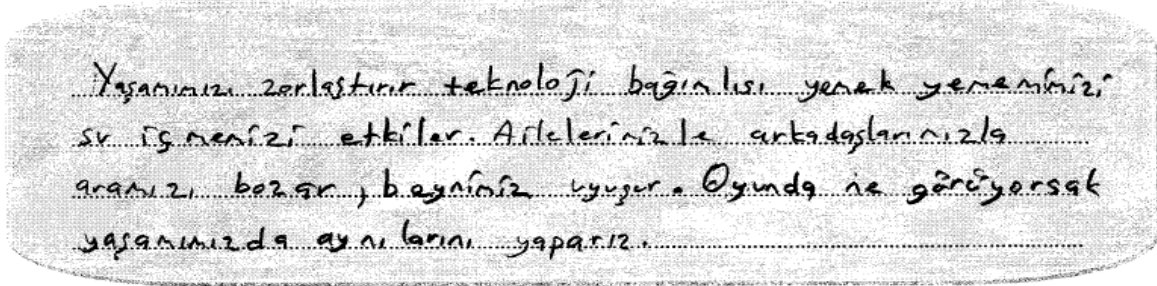 Yaşamımızı zorlaştırır teknoloji bağımlısı yemek yememimizi
su içmemizi etkiler. Ailelerimizle arkadaşlarımızla
aramızı bozar, beynimiz uyuşur. Oyunda ne görüyorsak
yaşamımızda aynılarını yaparız.